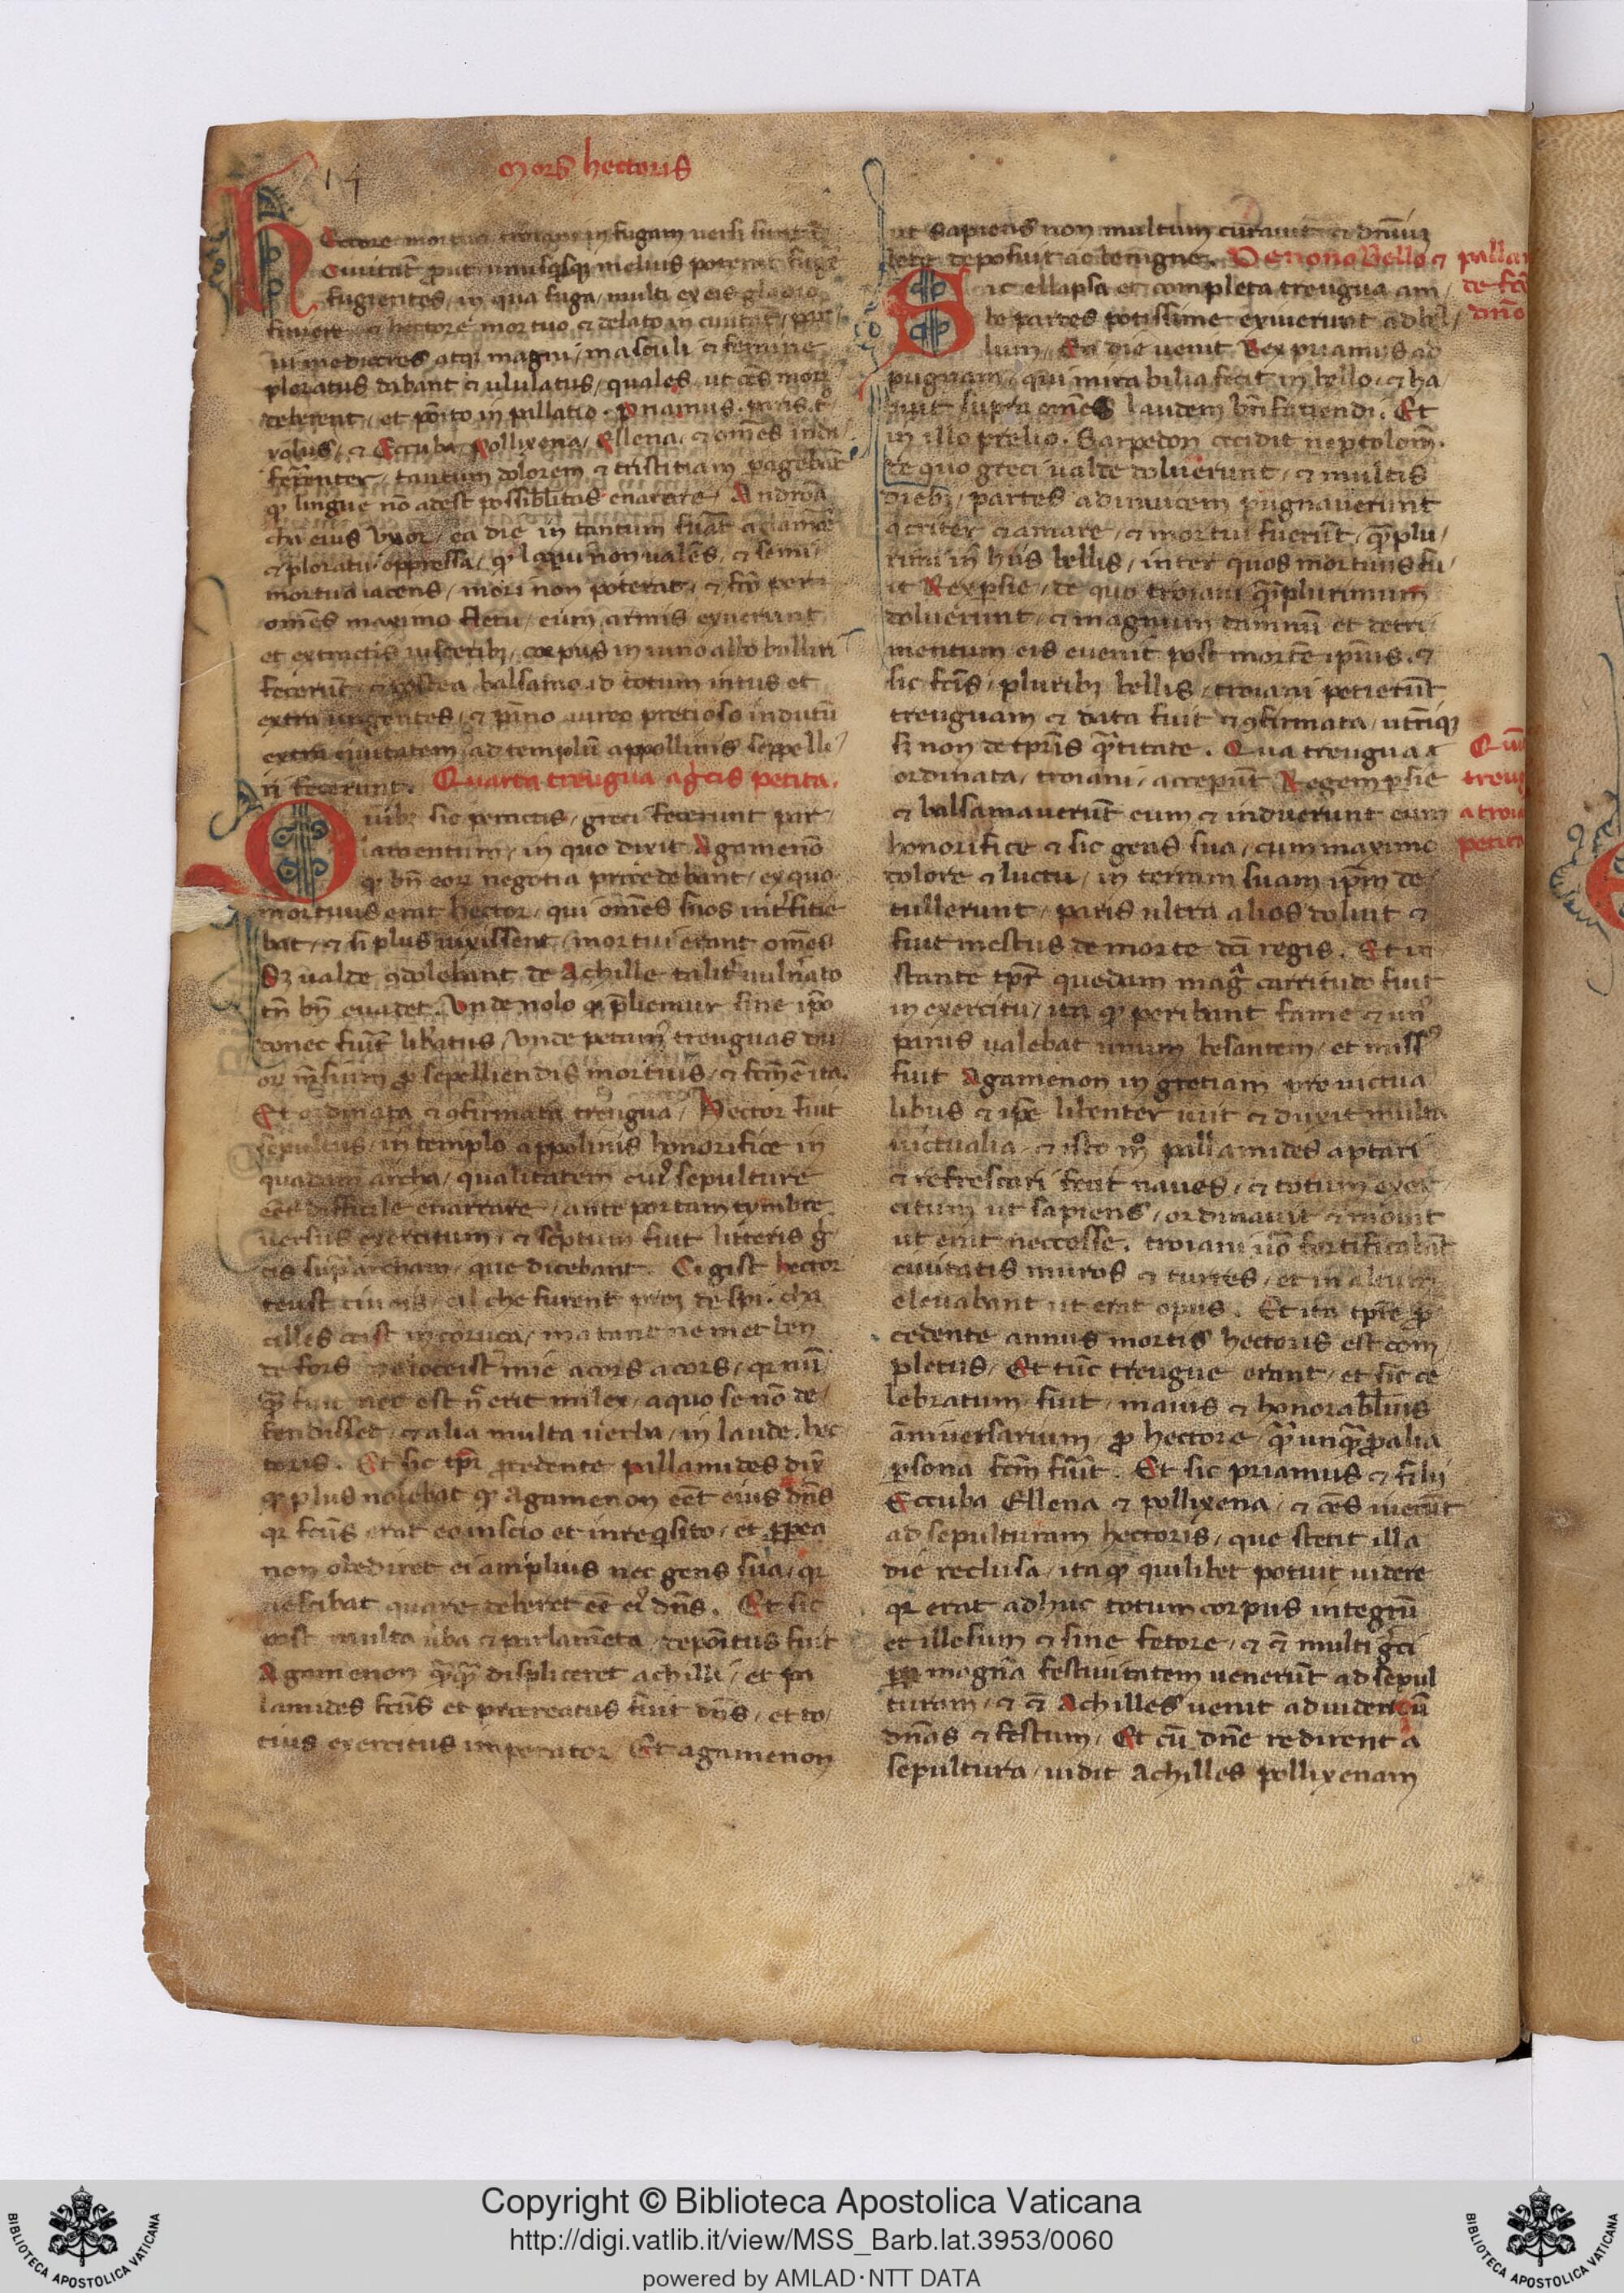 14
Mors hectoris
Hectore mortuo troiani in fugam uersi sunt
Ciuitatē prout unusq̄sq; melius poterat
fugientes, in qua fuga, multi ex eis gladio
finiere, & hectore mortuo, & delato in ciuitatē, par
ui mediocres atq; magni, masculi & femine
ploratus dabant & ululatus, quales, ut oēs mori
deberent, et pōito in pallatio. Priamus. paris.
& Eccuba, Pollixena, Ellena, & omēs indi
fērēnter, tantum dolorem & tristitiam pagebāt
qd lingue nō adest possibilitas enarare, Androa
cha eius Vxor, ea die in tantum
& ploratu oppressa, qd loqui non ualens, & semi
mortua iacens, mori non poterat,
omēs maximo fletu, eum armis exuerunt
et extractis uisceribz, corpus in uino albo bulliri
fecerūt, & postea balsamo id totum intus et
extra ungentes, & pāno aureo precioso indutū
extra ciuitatem, ad templū appollinis seppelli
ri fecerunt. Quarta treugua a grecis petita.
Quibz sic peractis, greci fecerunt par
lamentum, in quo dixit Agamenō
qd bn̄ eorū negotia procedebant, ex quo
mortuus erat hector, qui omēs suos int̄ficie
bat, & si plus uixissent, mortui erant omēs
Sz ualde 9dolebant de Achille talit̄ uuln̄ato
tn̄ bn̄ euadet. Vnde nolo qd p̄liemur sine ipō
donec fuīt lib̄atus, Vnde petam9 treuguas du
or mēsium p sepelliendis mortuis, & fcm̄ ē ita.
Et ordinata & 9firmata treugua, Hector fuit
sepultus, in templo appolinis honorifice in
quadam archa, qualitatem cui9 sepulture
eēt difficile enarrare, ante portam tymbre
uersus exercitum, & sc̄ptum fuit litteris g
cis sup̄ archam, que dicebant. Ci gist hector
cilles
de fors acors acors, qr nū
q̄ fuit nec est n̄ erit milex, a quo se nō de
fendisset, & alia multa uerba, in laude, hec
toris. Et sic tp̄r p̄cedente pallamides dix̄
qd plus nolebat qd Agamenon eēt eius dn̄s
qr fcūs erat eo inscio et inreq̄sito, et ppea
non obediret ei amplius nec gens sua, qr
nescibat quare deberet eē ei9 dn̄s. Et sic
post multa ūba & parlam̄eta, depōitus fuit
Agamenon q̄q̄ displiceret achilli, et pa
lamides fcūs et procreatus fuit dn̄s, et to
tius exercitus imperator, Et agamenon
ut sapiens non multum curauit & dn̄iuz
deposuit ac benigne. De nono Bello &
palla
de fcō
dn̄o
Sic ellapsa et completa treugua am
be partes potissime exiuerunt ad bel
lum, Ea die uenit Rex priamus ad
pugnam, qui mirabilia fecit in bello, & ha
buit supra omēs laudem bn̄ faciendi. Et
in illo prelio. Sarpedon cecidit neptolom̄.
de quo greci ualde doluerunt, & multis
diebz, partes adinuicem pugnauerunt
acriter & amare, & mortui fuerūt, q̄plu
rimi in hiis bellis, inter quos mortuus fu
it Rex psie, de quo troiani q̄plurimum
doluerunt, & magnum damnū et detri
mentum eis euenit post mortē ip̄ius. &
sic fctīs, pluribz bellis, troiani petierūt
treuguam & data fuit & 9firmata, utriq;
sz non de tp̄ris q̄titate. Qua treugua
ordinata, troiani, accepūt Regem psie
& balsamauerūt eum & induerunt eum
honorifice & sic gens sua, cum maximo
dolore & luctu, in terram suam ip̄m de
tullerunt, paris ultra alios doluit &
fuit mestus de morte dcī regis. Et in
stante tp̄r quedam mag carritudo fuit
in exercitu, ita qd peribant fame & un9
panis ualebat unum besantem, et miss9
fuit Agamenon in greciam pro uictua
libus & ipē libenter iuit & duxit multa
uictualia, & isto m̄o pallamides aptari
& refrescari fecit naues, & totum exer
citum ut sapiens, ordinauit & monuit
ut erat neccesse. troiani u̇o fortificabāt
ciuitatis muros & turres, et in altum
eleuabant ut erat opus. Et ita tp̄re p
cedente annus mortis hectoris est com
pletus, Et tūc treugue erant, et sic ce
lebratum fuit, maius & honorabīlius
āniuersarium, p hectore, q̄ unq̄ p alia
psona fcm̄ fuīt. Et sic priamus & filii
Eccuba Ellena & pollixena, & oēs iuerūt
ad sepulturam hectoris, que stetit illa
die reclusa, ita qd quilibet potuit uidere
qr erat adhuc totum corpus integrū
et illesum & sine fetore, & ēt multi grci
pp magnā festiuitatem uenerūt ad sepul
turam, & ēt Achilles uenit ad uidendū
dn̄as & festum, Et cū dn̄e redirent a
sepultura, uidit Achilles pollixenam
treu
a troia
petita
Copyright © Biblioteca Apostolica Vaticana
http://digi.vatlib.it/view/MSS_Barb.lat.3953/0060
powered by AMLAD·NTT DATA
BIBLIOTECA APOSTOLICA VATICANA
BIBLIOTECA APOSTOLICA VATICANA